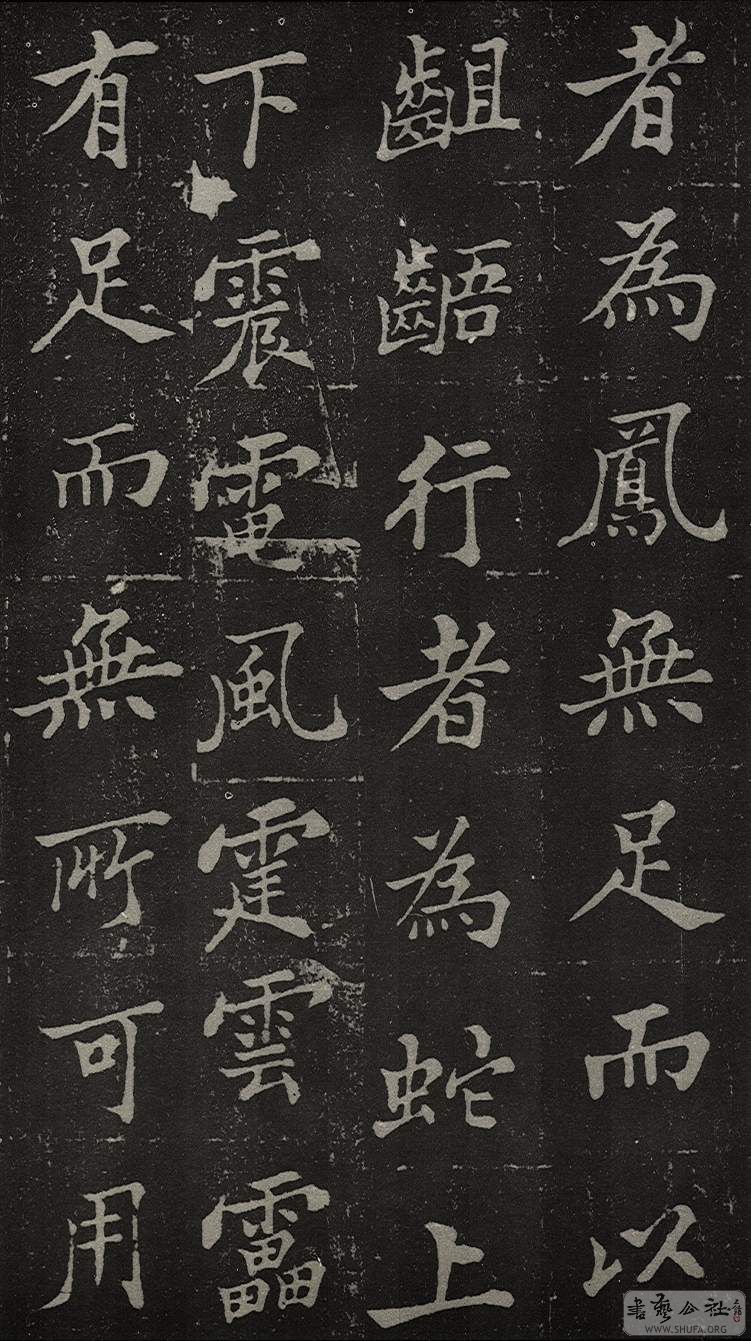 者為鳳無足而以
齟齬行者為蛇上
下震電風霆雲靁
有足而無所可用
書藝公社
WWW.SHUFA.ORG